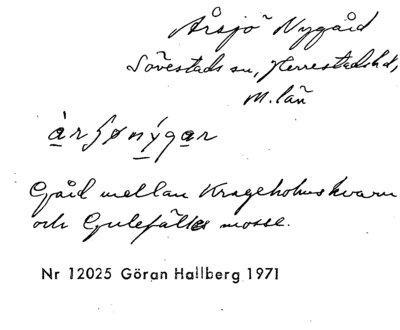 Årsjö Nygård
Sövestads sn, Herrestads hd,
M. län
àrʃønýgar
Gård mellan Krageholms kvarn
och Gulefälles mosse.
Nr 12025 Göran Hallberg 1971